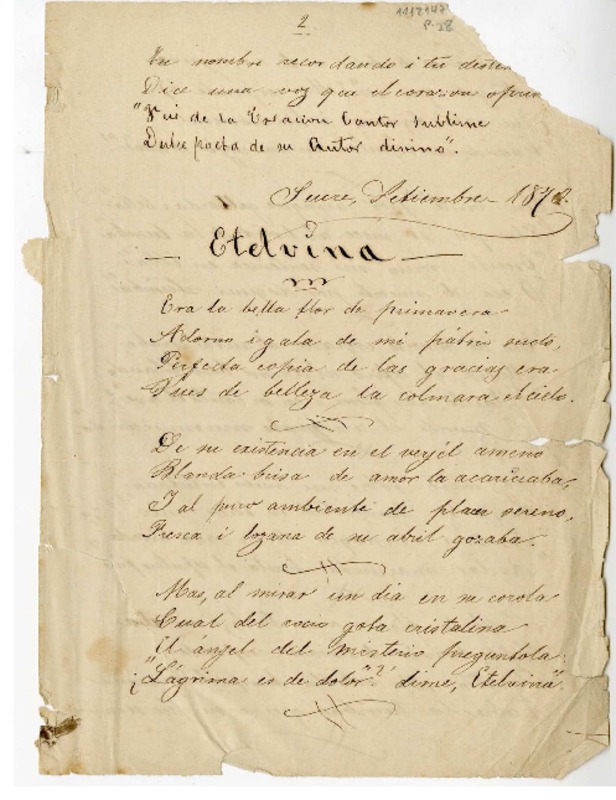 2
1112147
P-28
Tu nombre recordando i tu destin
Dice una voz que el corazon oprim
"Fué de la Creacion Cantor sublime
Dulce poeta de su Autor divino".
Sucre, Setiembre 187
Etelvina
Era la bella flor de primavera
Adorno i gala de mi pátrio suelo,
Perfecta copia de las gracias era
Pues de belleza la colmara el cielo.
De su existencia en el verjél ameno
Blanda brisa de amor la acariciaba,
I al puro ambiente de placer sereno,
Fresca i lozana de su abril gozaba.
Mas, al mirar un dia en su corola
Cual del rocio gota cristalina
El ángel del misterio preguntola:
¡"Lágrima es de dolor"? dime, Etelvina".